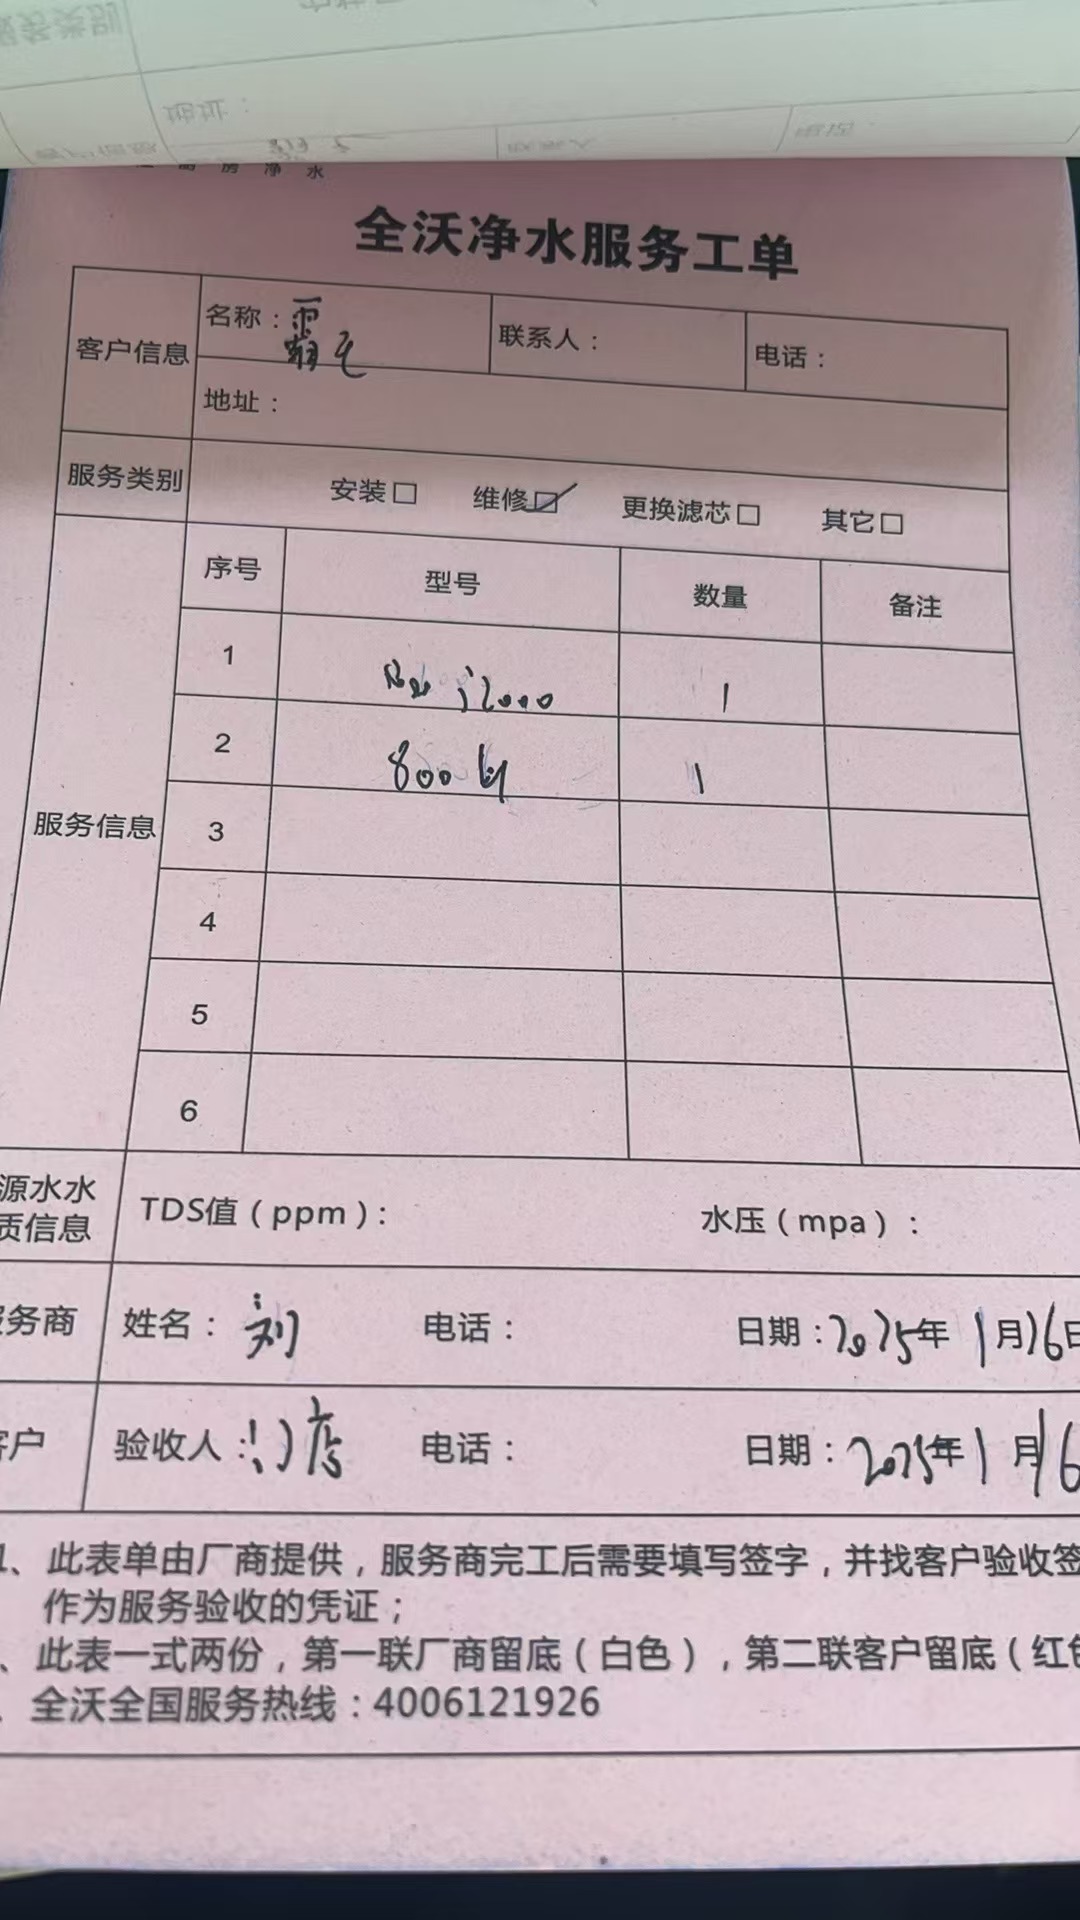 厨房净水
全沃净水服务工单
客户信息 名称： 联系人： 电话：
地址：
服务类别 安装□ 维修☑ 更换滤芯□ 其它□
服务信息 序号 型号 数量 备注
1 1
2 800 1
3
4
5
6
源水水
质信息 TDS值（ppm）： 水压（mpa）：
务商 姓名：刘 电话： 日期：2025年1月16日
户 验收人：门店 电话： 日期：2025年1月16
1、此表单由厂商提供，服务商完工后需要填写签字，并找客户验收签
作为服务验收的凭证；
、此表一式两份，第一联厂商留底（白色），第二联客户留底（红色
、全沃全国服务热线：4006121926